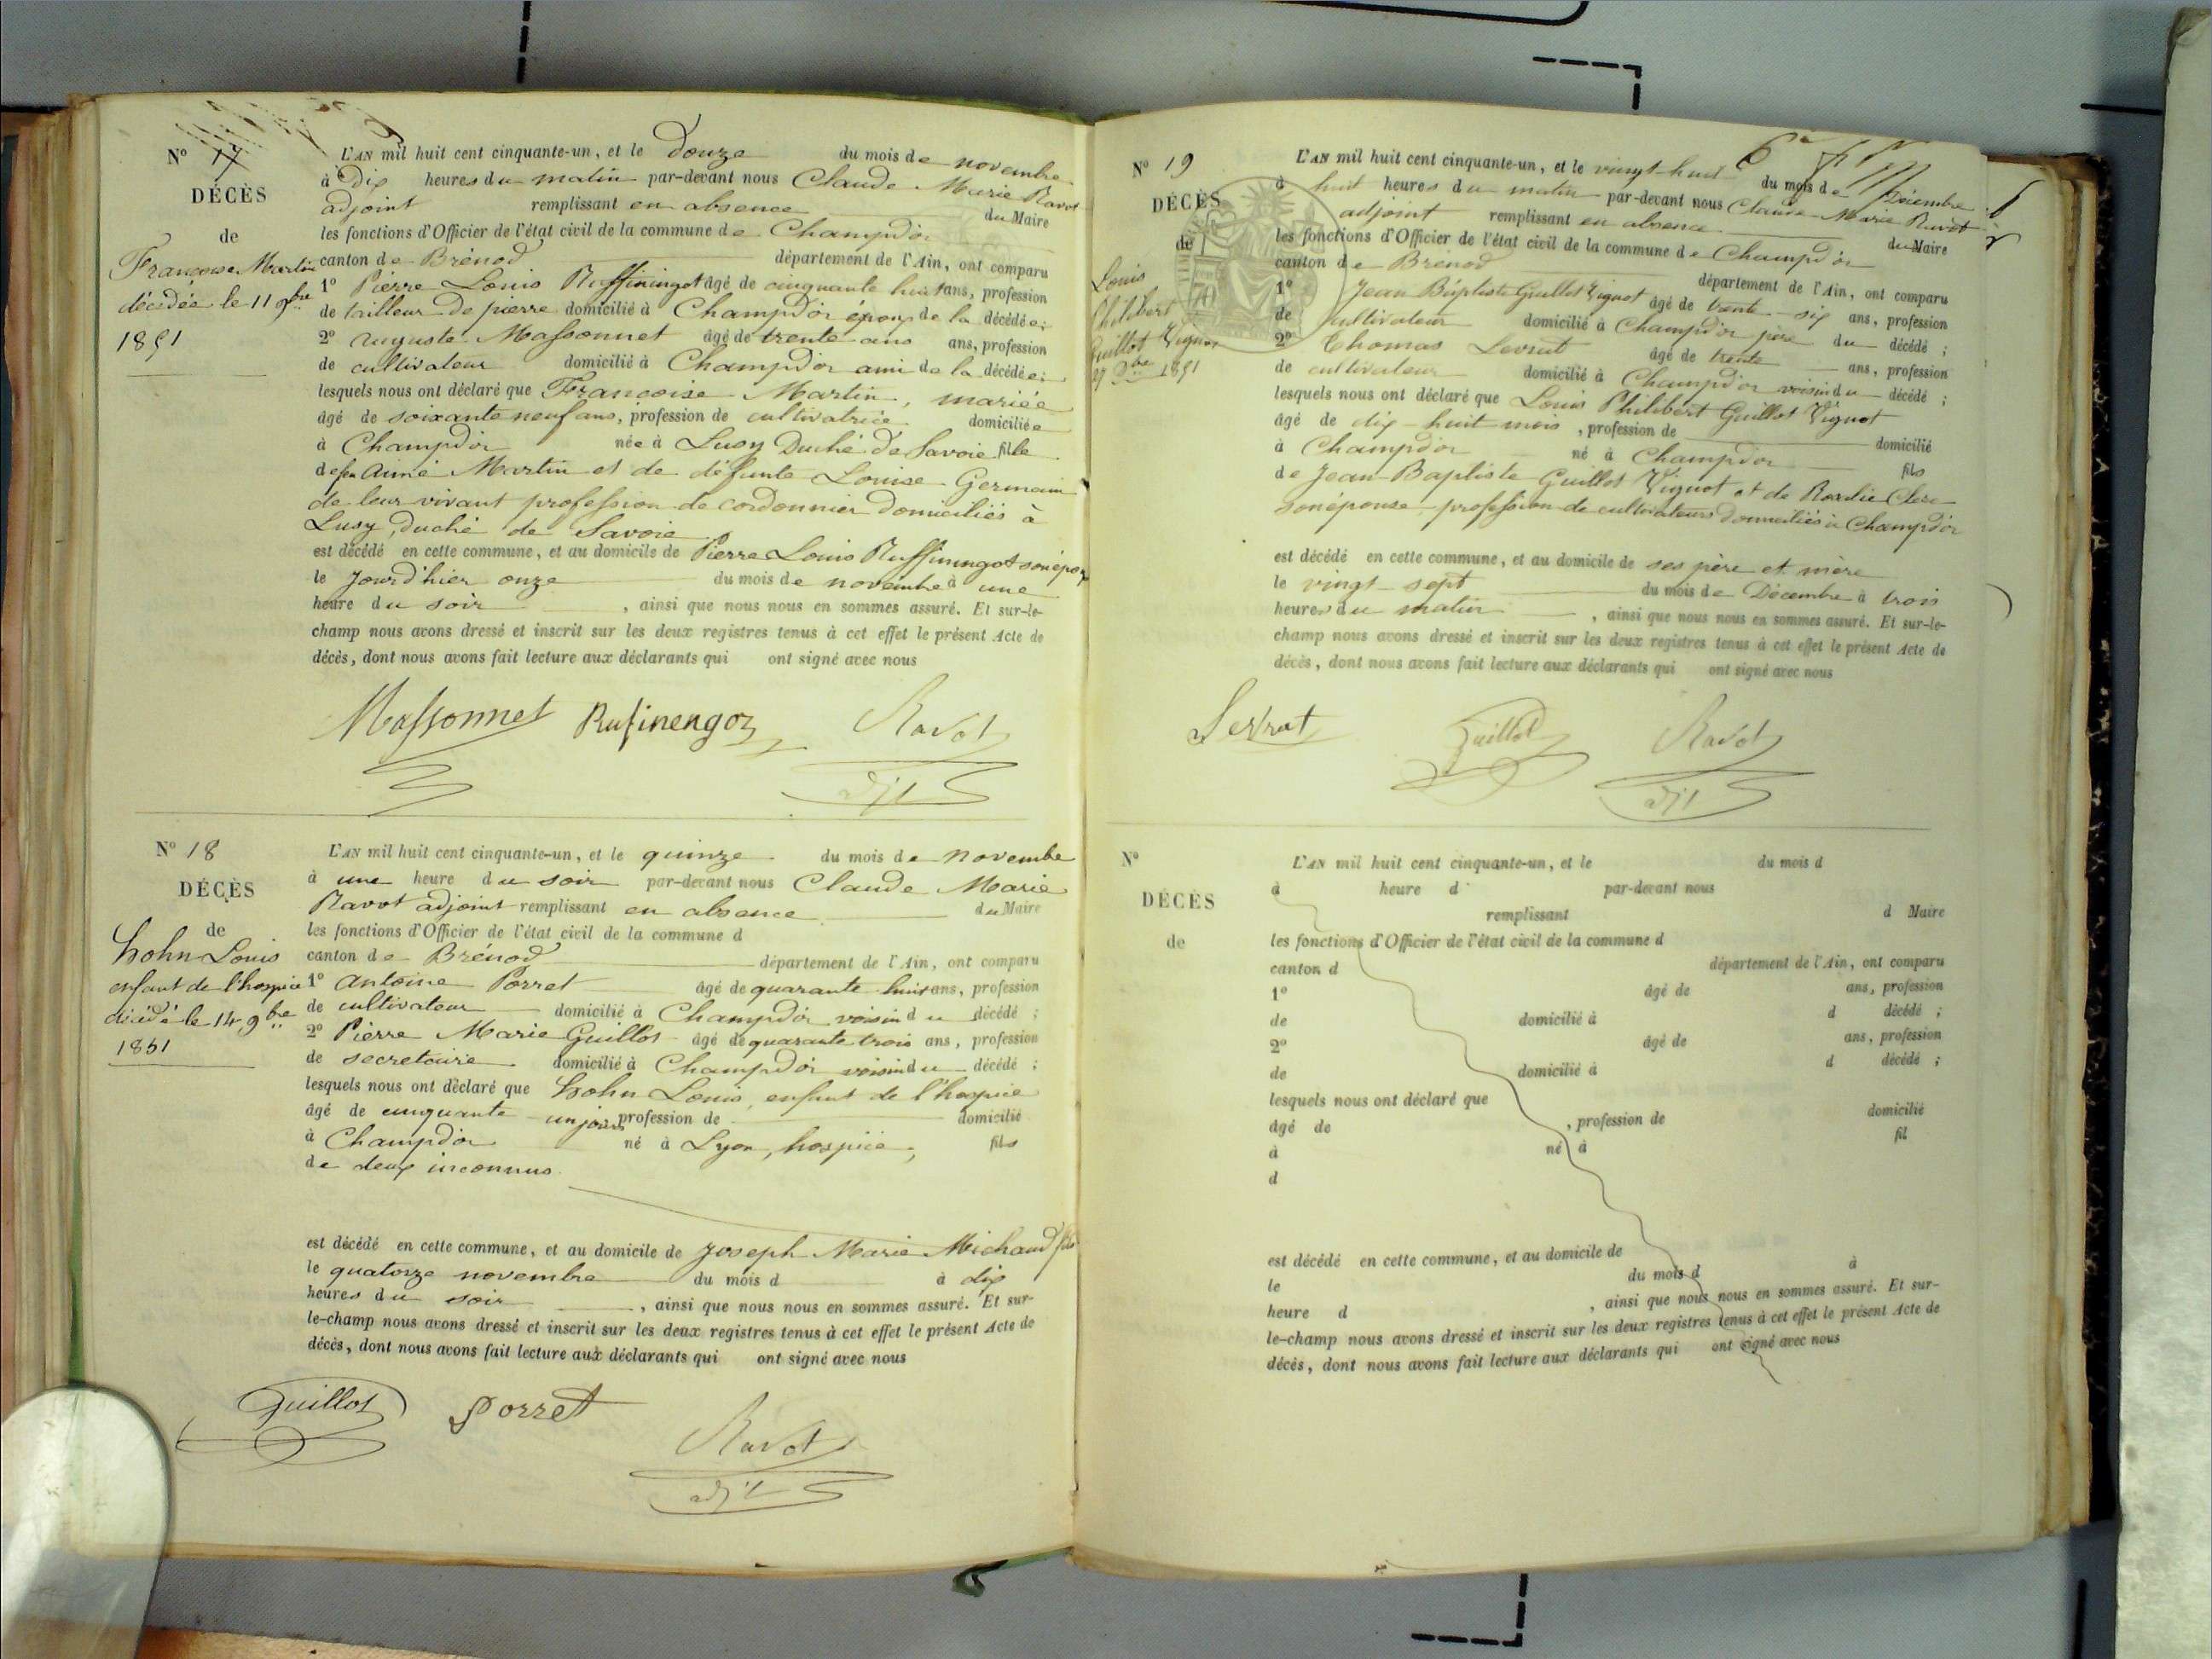 Nº 17
DÉCÈS
de
Françoise Martin
décédée le 11 9bre
1851
L'AN mil huit cent cinquante-un, et le Douze du mois de novembre
à Dix heures du matin par-devant nous Claude Marie Ravot
adjoint remplissant en absence du Maire
les fonctions d'Officier de l'état civil de la commune de Champdor
canton de Brénod département de l'Ain, ont comparu
1º Pierre Louis Ruffiningot âgé de cinquante huit ans, profession
de tailleur de pierre domicilié à Champdor époux de la décédée;
2º Auguste Massonnet âgé de trente ans ans, profession
de cultivateur domicilié à Champdor ami de la décédée;
lesquels nous ont déclaré que Françoise Martin, mariée
âgé de soixante neuf ans, profession de cultivatrice domiciliée
à Champdor née à Lusy Duché de Savoie fille
de feu Aimé Martin et de défunte Louise Germain
de leur vivant profession de cordonnier domiciliés à
Lusy, duché de Savoie
est décédé en cette commune, et au domicile de Pierre Louis Ruffiningot son époux
le jourd'hier onze du mois de novembre à une
heure du soir , ainsi que nous nous en sommes assuré. Et sur-le-
champ nous avons dressé et inscrit sur les deux registres tenus à cet effet le présent Acte de
décès, dont nous avons fait lecture aux déclarants qui ont signé avec nous
Massonnet Rufinengoz Ravot
adjt
Nº 18
DÉCÈS
de
hohn Louis
enfant de l'hospice
décédé le 14 9bre
1851
L'AN mil huit cent cinquante-un, et le quinze du mois de novembre
à une heure du soir par-devant nous Claude Marie
Ravot adjoint remplissant en absence du Maire
les fonctions d'Officier de l'état civil de la commune d
canton de Brénod département de l'Ain, ont comparu
1º Antoine Porret âgé de quarante huit ans, profession
de cultivateur domicilié à Champdor voisin du décédé ;
2º Pierre Marie Guillot âgé de quarante trois ans, profession
de secretaire domicilié à Champdor voisin du décédé ;
lesquels nous ont déclaré que hohn Louis, enfant de l'hospice
âgé de cinquante un jours profession de domicilié
à Champdor né à Lyon, hospice, fils
de deux inconnus
est décédé en cette commune, et au domicile de Joseph Marie Michaud fils
le quatorze novembre du mois d à dix
heures du soir , ainsi que nous nous en sommes assuré. Et sur-
le-champ nous avons dressé et inscrit sur les deux registres tenus à cet effet le présent Acte de
décès, dont nous avons fait lecture aux déclarants qui ont signé avec nous
Guillot Porret
Ravot
adjt
Nº 19
DÉCÈS
de
Louis
Philibert
Guillot Vignot
27 Xbre 1851
L'AN mil huit cent cinquante-un, et le vingt-huit du mois de Décembre
à huit heures du matin par-devant nous Claude Marie Ravot
adjoint remplissant en absence du Maire
les fonctions d'Officier de l'état civil de la commune de Champdor
canton de Brénod département de l'Ain, ont comparu
1º Jean Baptiste Guillot Vignot âgé de trente-six ans, profession
de cultivateur domicilié à Champdor père du décédé ;
2º Thomas Levrat âgé de trente ans, profession
de cultivateur domicilié à Champdor voisin du décédé ;
lesquels nous ont déclaré que Louis Philibert Guillot Vignot
âgé de dix-huit mois , profession de domicilié
à Champdor né à Champdor fils
de Jean-Baptiste Guillot Vignot et de Rosalie Clerc
son épouse, profession de cultivateurs domiciliés à Champdor
est décédé en cette commune, et au domicile de ses père et mère
le vingt-sept du mois de Décembre à trois
heures du matin , ainsi que nous nous en sommes assuré. Et sur-le-
champ nous avons dressé et inscrit sur les deux registres tenus à cet effet le présent Acte de
décès, dont nous avons fait lecture aux déclarants qui ont signé avec nous
Levrat Guillot Ravot
adjt
Nº
DÉCÈS
de
L'AN mil huit cent cinquante-un, et le du mois d
à heure d par-devant nous
remplissant d Maire
les fonctions d'Officier de l'état civil de la commune d
canton d département de l'Ain, ont comparu
1º âgé de ans, profession
de domicilié à d décédé ;
2º âgé de ans, profession
de domicilié à d décédé ;
lesquels nous ont déclaré que
âgé de , profession de domicilié
à né à fil
d
est décédé en cette commune, et au domicile de
le du mois d à
heure d , ainsi que nous nous en sommes assuré. Et sur-
le-champ nous avons dressé et inscrit sur les deux registres tenus à cet effet le présent Acte de
décès, dont nous avons fait lecture aux déclarants qui ont signé avec nous